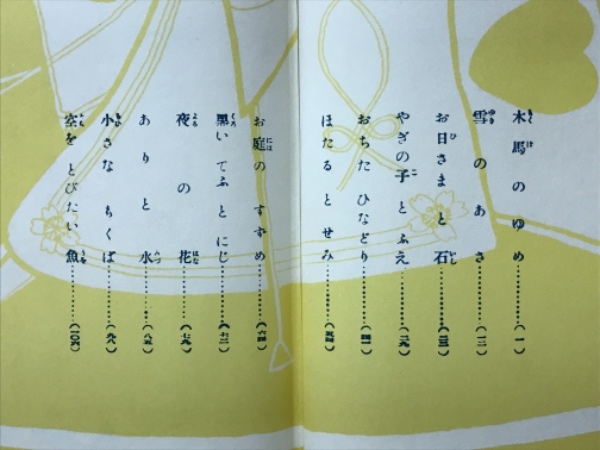 木馬のゆめ…………(一)
雪のあさ…………(一二)
お日さまと石…………(二三)
やぎの子とふえ…………(二九)
おちたひなどり…………(四一)
ほたるとせみ…………(五四)
お庭のすずめ…………(六四)
黒いてふとにじ…………(七二)
夜の花…………(七九)
ありと水…………(八五)
小さなちくば…………(九八)
空をとびたい魚…………(一〇六)